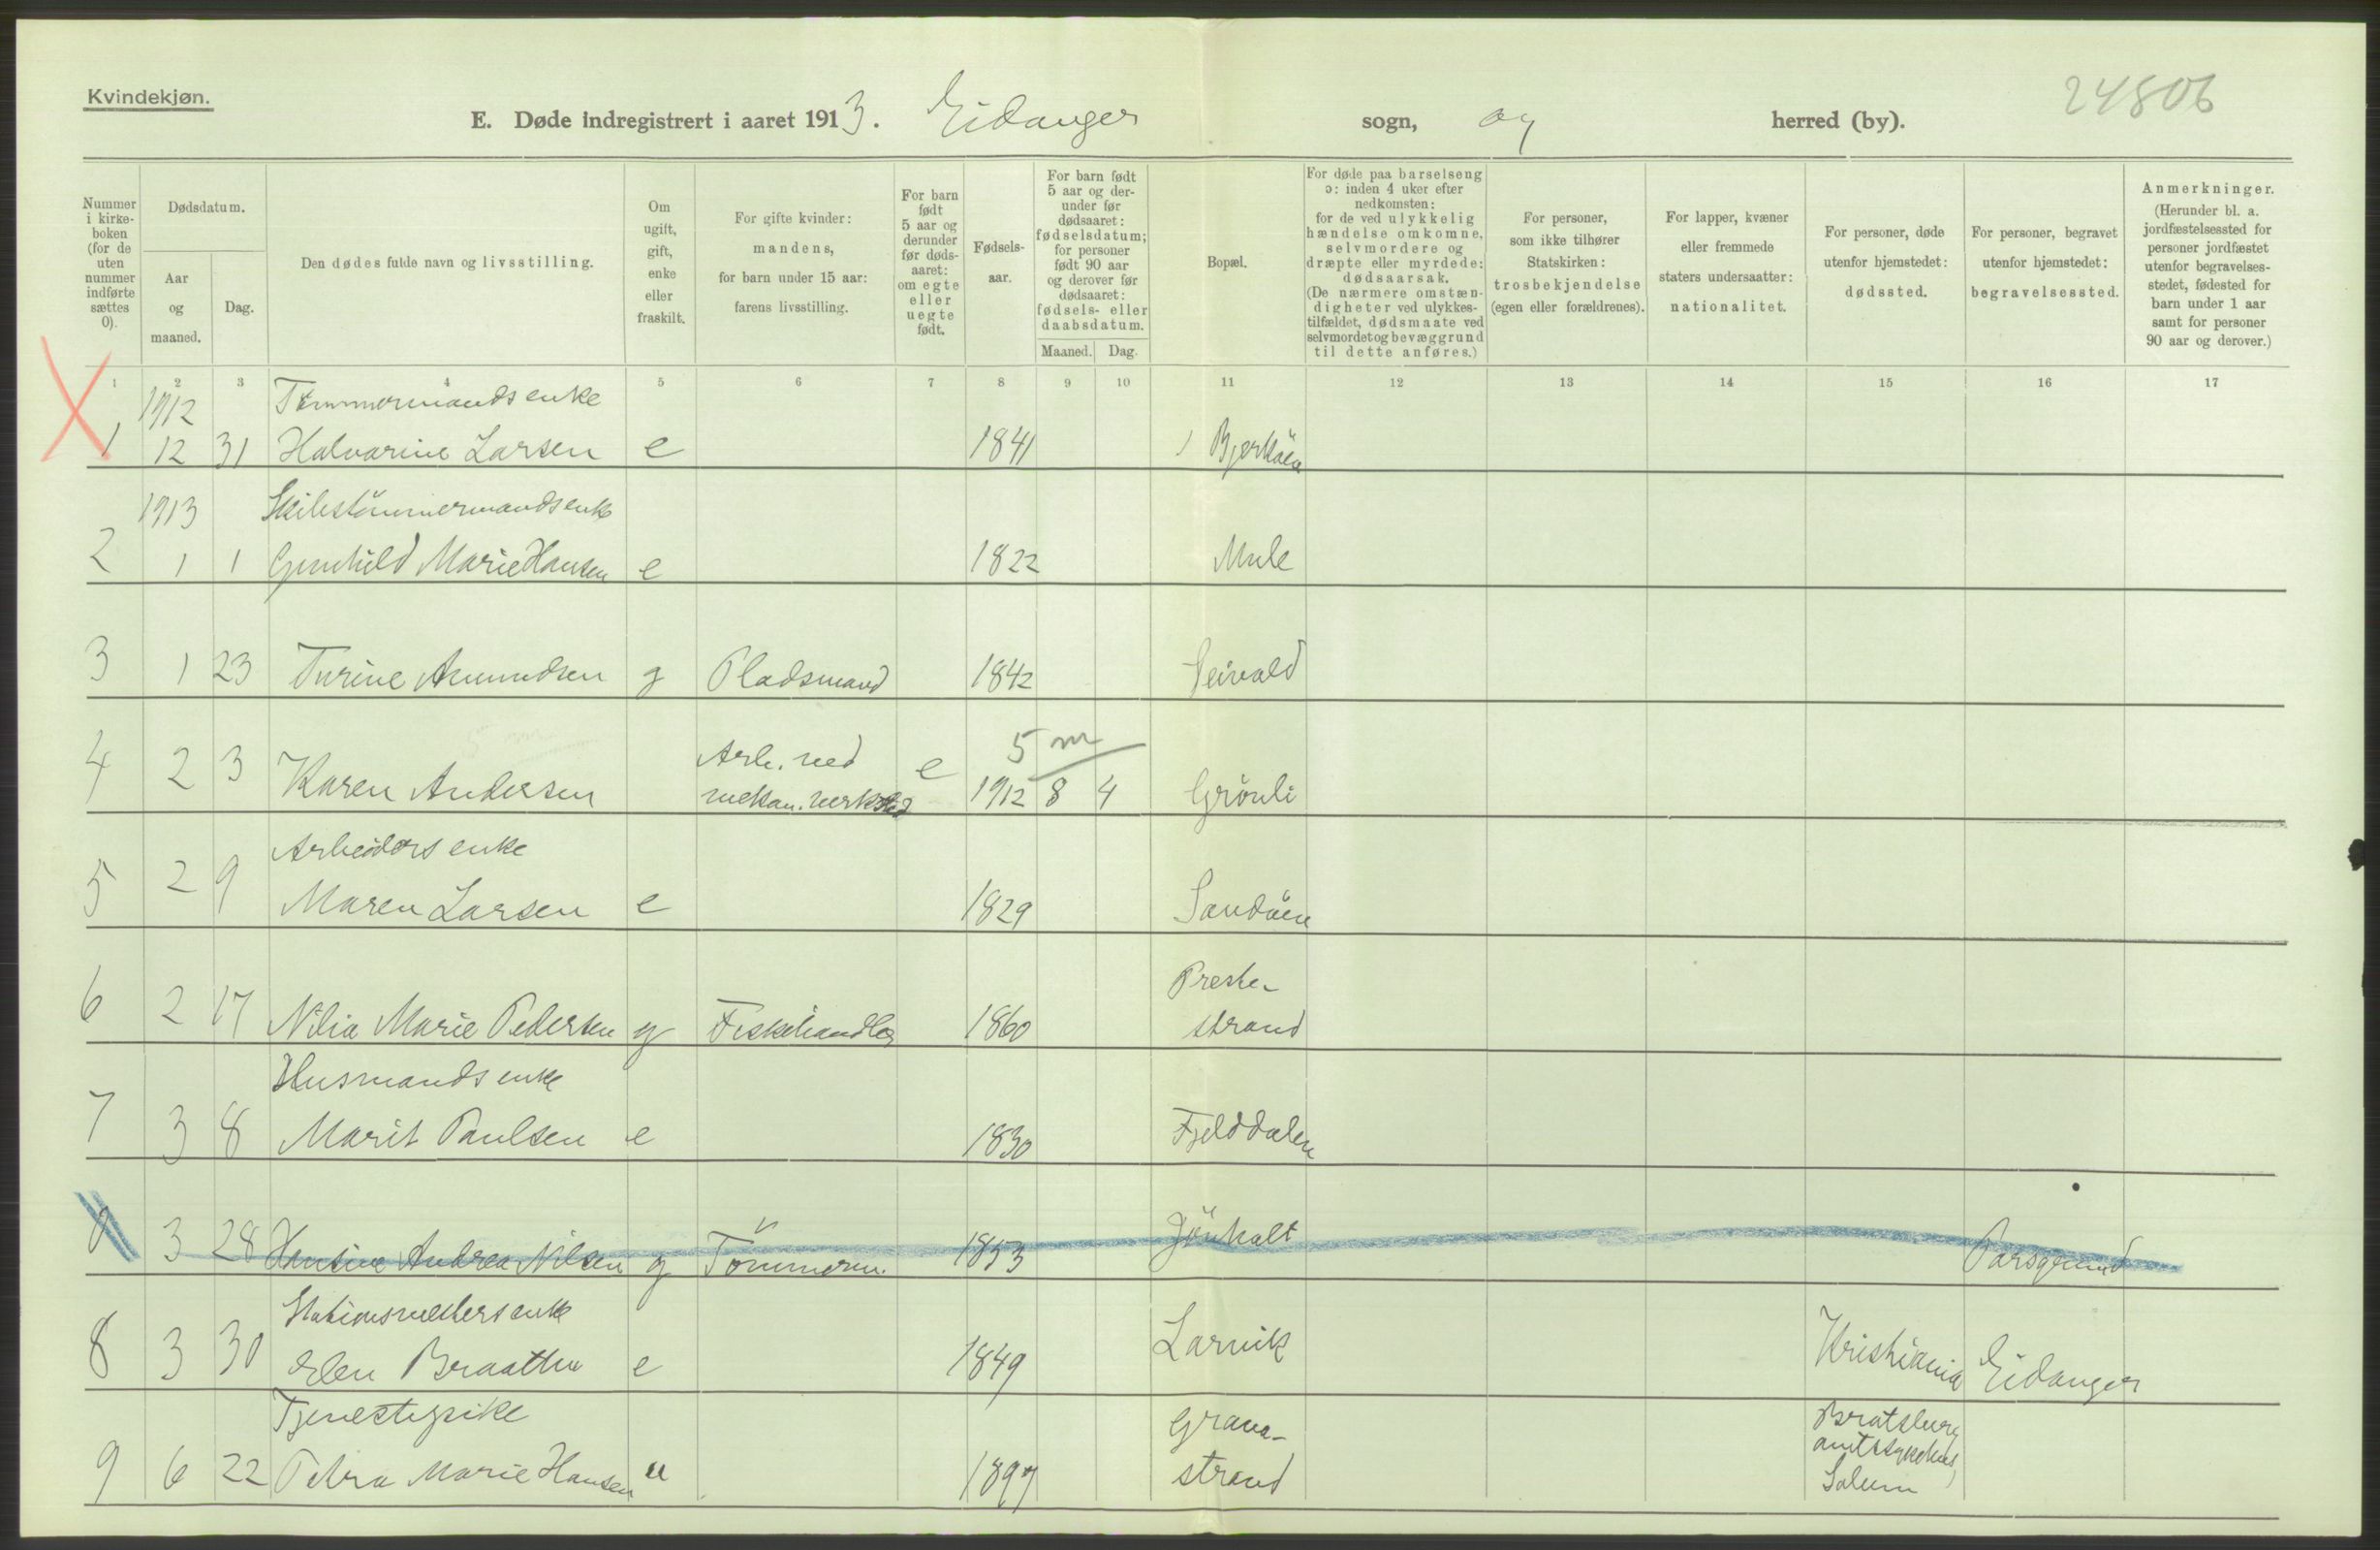 Kvindekjøn.
24806
E. Døde indregistrert i aaret 1913. Eidanger sogn, og herred (by).
Nummer i kirke-boken (for de uten nummer indførte sættes 0).
Dødsdatum.
Aar og maaned.
Dag.
Den dødes fulde navn og livsstilling.
Om ugift, gift, enke eller fraskilt.
For gifte kvinder: mandens, for barn under 15 aar: farens livsstilling.
For barn født 5 aar og derunder før døds-aaret: om egte eller uegte født.
Fødsels-aar.
For barn født 5 aar og der-under før dødsaaret: fødselsdatum; for personer født 90 aar og derover før dødsaaret: fødsels- eller daabsdatum.
Maaned.
Dag.
Bopæl.
For døde paa barselseng ɔ: inden 4 uker efter nedkomsten: for de ved ulykkelig hændelse omkomne, selvmordere og dræpte eller myrdede: dødsaarsak. (De nærmere omstæn-digheter ved ulykkes-tilfældet, dødsmaate ved selvmordet og bevæggrund til dette anføres.)
For personer, som ikke tilhører Statskirken: trosbekjendelse (egen eller forældrenes).
For lapper, kvæner eller fremmede staters undersaatter: nationalitet.
For personer, døde utenfor hjemstedet: dødssted.
For personer, begravet utenfor hjemstedet: begravelsessted.
Anmerkninger. (Herunder bl. a. jordfæstelsessted for personer jordfæstet utenfor begravelses-stedet, fødested for barn under 1 aar samt for personer 90 aar og derover.)
1 2 3 4 5 6 7 8 9 10 11 12 13 14 15 16 17
1912 Tömmermands enke
1 12 31 Halvarine Larsen e 1841 Bjerköen
1913 Skibstömmermandsenke
2 1 1 Gunhild Marie Hansen e 1822 Mule
3 1 23 Turine Amundsen g Pladsmand 1842 Leivald
Arb. ved 5 m
4 2 3 Karen Andersen mekan. verksted e 1912 8 4 Grönli
Arbeiders enke
5 2 9 Maren Larsen e 1829 Sandöen
Preste-
6 2 17 Nilia Marie Pedersen g Fiskehandler 1860 strand
Husmands enke
7 3 8 Marit Paulsen e 1830 Fjelddalen
3 28 Hansine Andrea Nilsen g Tömmerm. 1853 Jönholt Porsgrund
Stationsmesters enke
8 3 30 Elen Braathen e 1849 Larvik Kristiania Eidanger
Tjenestepike Grava- Bratsberg
amtssykehus,
9 6 22 Petra Marie Hansen u 1897 strand Solum